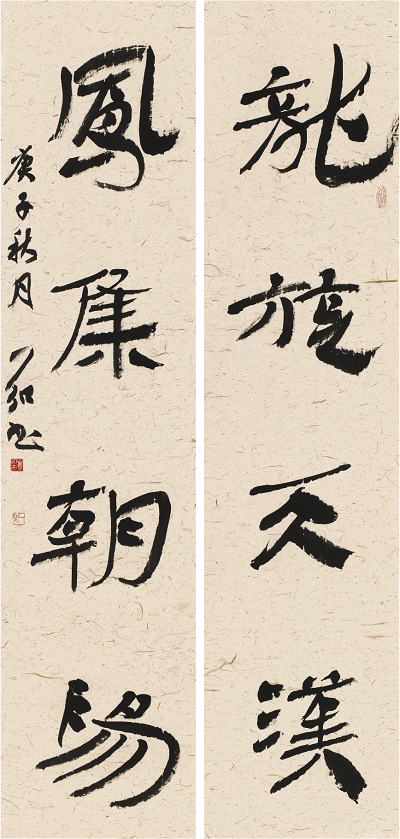 龍旋天漢
鳳集朝陽
庚子秋月